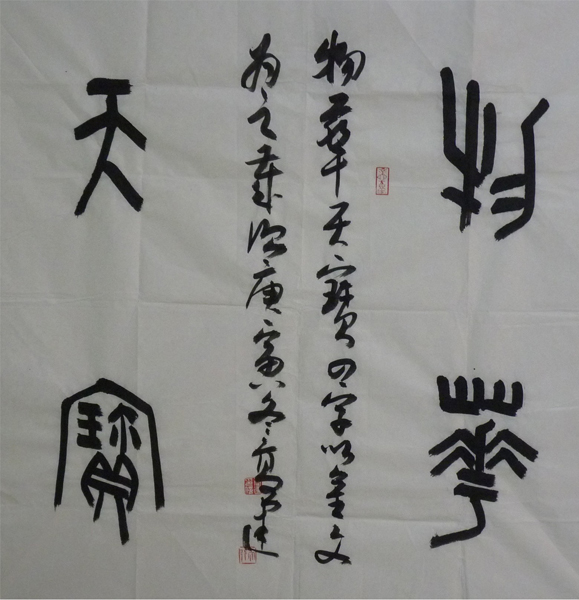 物華
物華天寶四字以金文
為之歲次庚寅冬
天寶